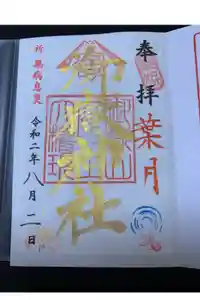 奉拝
葉月
御嶽神社
祈 無病息災
令和二年八月二日